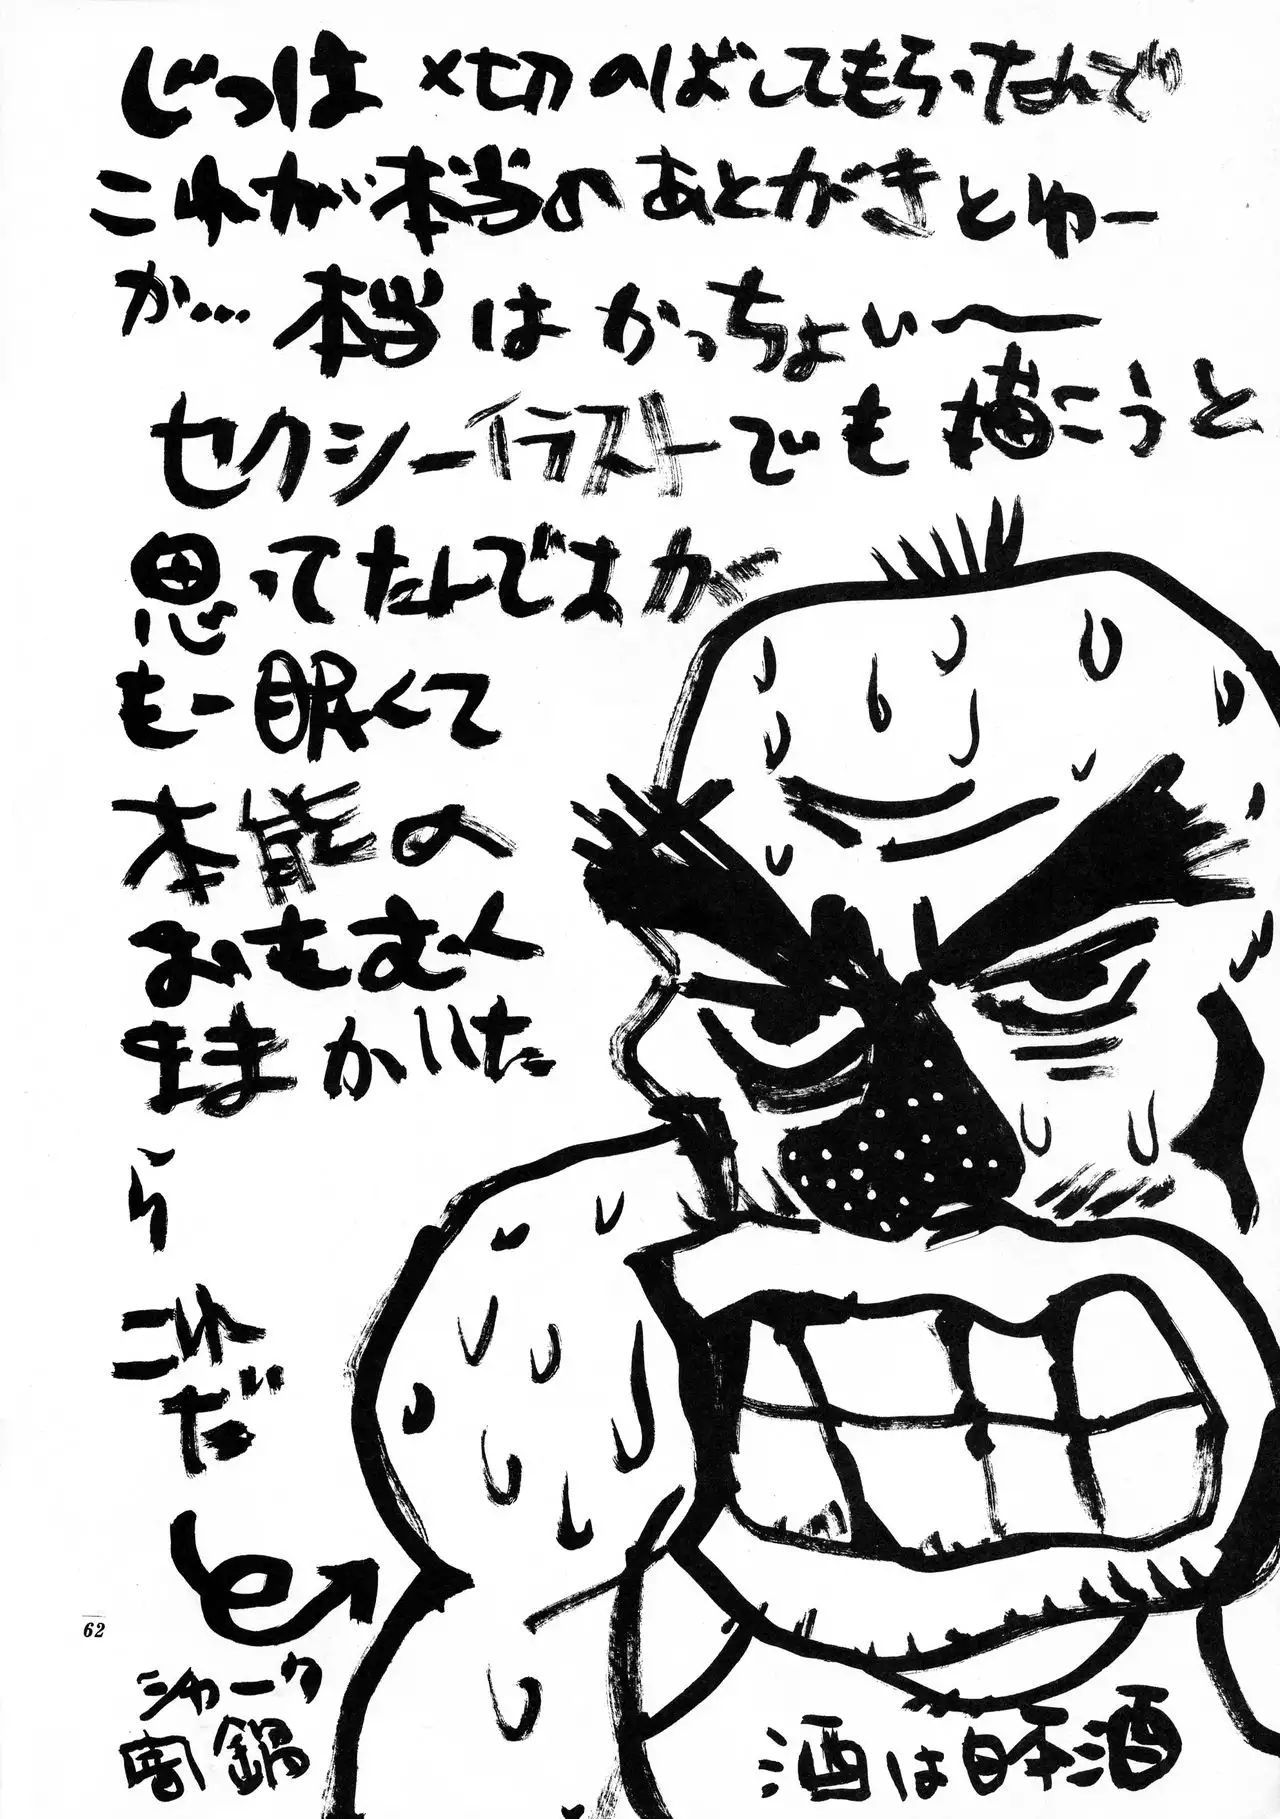 じつは〆切のばしてもらったんで
これが本当のあとがきとゆー
か…本当はかっちょいい〜
セクシーイラストでも描こうと
思ってたんですが
もー眠くて
本能の
おもむく
ままかいた
ら
これ
だ
62
シャーク
鍋
酒は日本酒